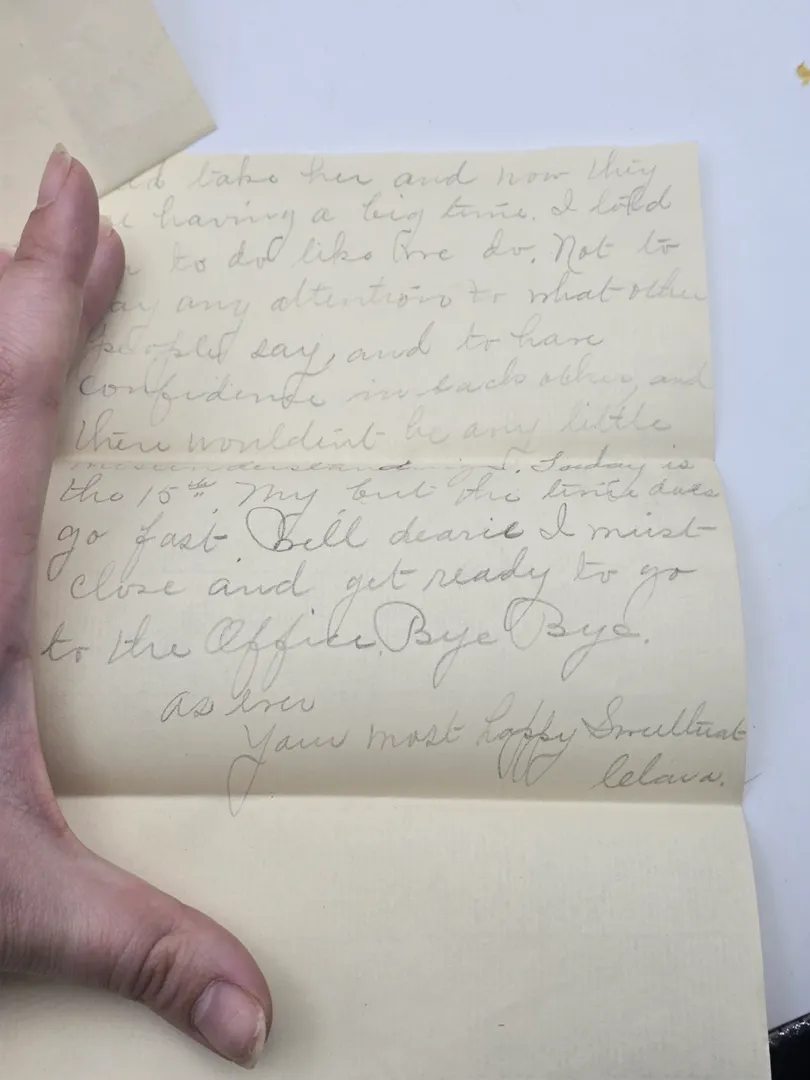 take her and now they
having a big time. I told
to do like we do. Not to
any attention to what other
people say, and to have
confidence in each other, and
there wouldn't be any little
misunderstandings. Today is
the 15th. My but the time does
go fast Well dearie I must
close and get ready to go
to the Office. Bye Bye.
as ever
Your most happy Sweetheart
Clara.